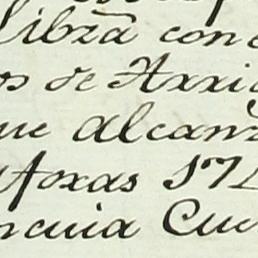 Librã con
os de Arri
ue alcanz
foxas 172
ncuia Cue